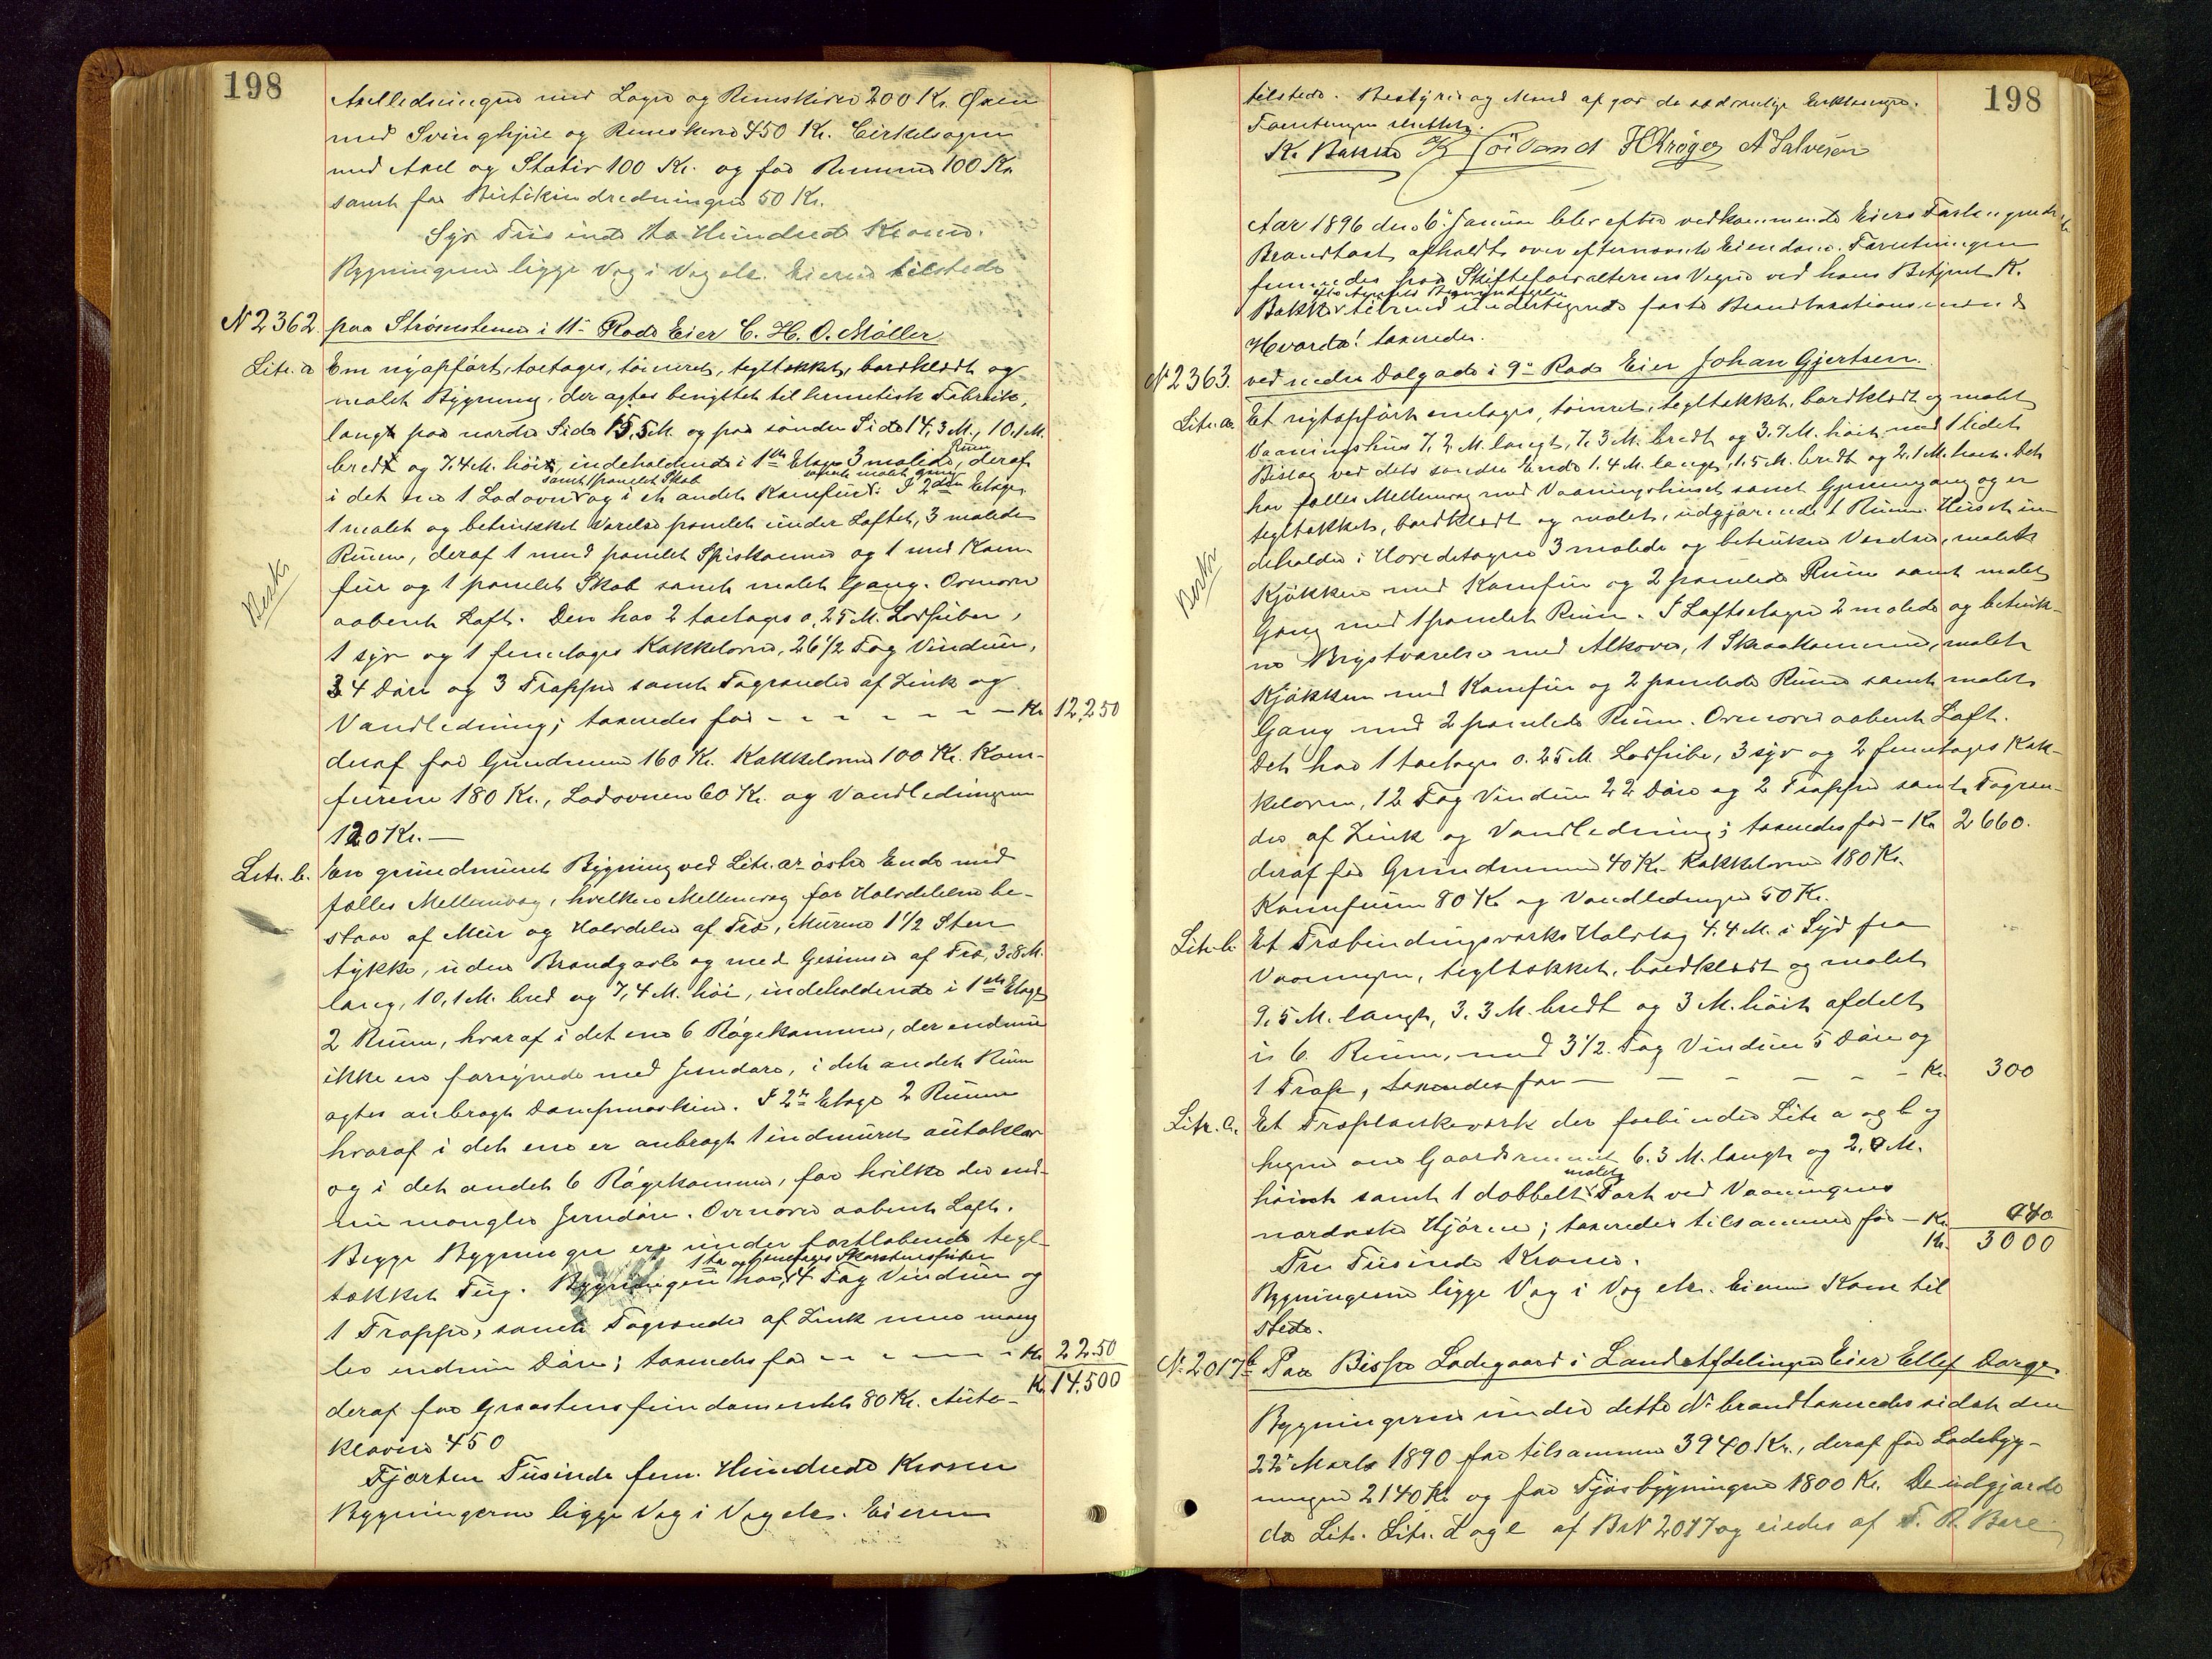 198
Axelledningen med Lager og Remskiver 200 Kr. Øxen
med Svinghjul og Remskive 450 Kr. Cirkelsagen
med Axel og Stativ 100 Kr. og for Remme 100 Kr
samt for Butikindredningen 50 Kr.
Syv Tusinde to Hundrede Kroner.
Bygningerne ligge Væg i Væg etc. Eieren tilstede
N 2362. paa Strömstenen i 11te Rode Eier C. H. O. Møller
Litr. a En nyopført, toetages, tömret, tegltækket, bordklædt og
malet Bygning, der agtes benyttet til hermetisk Fabrik,
langt paa nordre Side 15,5 M. og paa söndre Side 14,3 M., 10,1 M.
bredt og 7,4 M. höit, indeholdende i 1ste Etage 3 malede Rum, deraf
samt 1 panelet Skab samt malet Gang
i det ene 1 Lodovn og i et andet Komfur. I 2den Etage
1 malet og betrukket Værelse panelet under Loftet, 3 malede
Rum, deraf 1 med panelet Spiskammer og 1 med Kom-
fur og 1 panelet Skab samt malet Gang. Ovenover
aabent Loft. Den har 2 toetages 0,25 M. Lodpiber,
Besk
1 syv og 1 femetages Kakkelovne, 26 1/2 Fag Vinduer,
34 Döre og 3 Trapper samt Tagrender af Zink og
Vandledning; taxeredes for - - - - - Kr 12,250
deraf for Grundmuren 160 Kr. Kakkelovne 100 Kr. Kom-
furene 180 Kr., Lodovnen 60 Kr. og Vandledningen
120 Kr. —
Litr. b. En grundmuret Bygning ved Litr. a's östre Ende med
fælles Mellemvæg, hvilken Mellemvæg for Halvdelen be-
staar af Mur og Halvdelen af Træ, Murene 1 1/2 Sten
tykke, uden Brandgavle og med Gesimser af Træ, 3,8 M.
lang, 10,1 M. bred og 7,4 M. höi, indeholdende i 1ste Etage
2 Rum, hvoraf i det ene 6 Rögekammere, der endnu
ikke er forsynede med Jerndöre, i det andet Rum
agtes anbragt Dampmaskine. I 2den Etage 2 Rum
hvoraf i det ene er anbragt 1 indmuret autoklav
og i det andet 6 Rögekammere, for hvilke der end-
nu mangler Jerndöre. Ovenover aabent Loft.
Begge Bygninger ere under fortløbende tegl-
1 to og 1 femetages Skorstenspiber
tækket Tag. Bygningen har 4 Fag Vinduer og
1 Trappe, samt Tagrender af Zink men mang
ler endnu Döre; taxeredes for - - - - Kr 22.50
deraf for Graastensfundamentet 80 Kr. Auto- Kr 14,500
klaven 450
Fjorten Tusinde fem Hundrede Kroner
Bygningerne ligge Væg i Væg etc. Eieren
198
tilstede. Bestyrer og Mænd afgav de sædvanlige Erklæringer.
Forretningen sluttet.
K. Bakke K Göiland H Kröger A Salvesen
Aar 1896 den 6te Januar blev efter vedkommende Eiers Forlangende
Brandtaxt afholdt over efternævnte Eiendomme. Forretningen
fremmedes paa Skifteforvalterens Vegne ved hans Betjent K.
Bakke tilligemed undertegnede faste Brandtaxationsmænd
Hvorda! taxeredes.
N 2363. ved nedre Dalgade i 9de Rode Eier Johan Gjertsen.
Litr. a Et nytopfört enetages, tömret, tegltækket, bordklædt og malet
Vaaningshus 7,2 M. langt, 7,3 M. bredt og 3,7 M. höit med 1 lidet
Bislag ved dets söndre Ende 1,4 M. langt, 1,5 M. bredt og 2,1 M. höit. Det
har fælles Mellemvæg med Vaaningshuset samt Gjennemgang og er
tegltækket, bordklædt og malet, udgjørende 1 Rum. Huset in-
deholder i Hovedetagen 3 malede og betrukne Værelser, malet
Bestr
Kjökken med Komfur og 2 panelede Rum samt malet
Gang med 1 panelet Rum. I Loftsetagen 2 malede og betruk-
ne Brystværelser med Alkover, 1 Skraakammer, malet
Kjökken med Komfur og 2 panelede Rum samt malet
Gang med 2 panelede Rum. Ovenover aabent Loft.
Det har 1 toetages 0.25 M. Lodpibe, 3 syv og 2 femetages Kak-
kelovne, 12 Fag Vinduer 22 Döre og 2 Trapper samt Tagren-
der af Zink og Vandledning; taxeredes for - Kr 2660.
deraf for Grundmuren 40 Kr. Kakkelovne 180 Kr.
Komfuren 80 Kr og Vandledningen 50 Kr.
Litr. b. Et Træbindingsværks Halvtag 4.4 M. i Syd fra
Vaaningen, tegltækket, bordklædt og malet
9,5 M. langt, 3.3 M. bredt og 3 M. höit afdelt
i 6 Rum, med 3 1/2 Fag Vinduer 5 Döre og
1 Trap, taxeredes for — — - - - Kr. 300
Litr. c. Et Træplankeværk der forbinder Litr a og b og
hegner om Gaardsrummet 6.3 M. langt og 2,0 M.
malet
höit samt 1 dobbelt Port ved Vaaningens
nordöstre Hjörne; taxeredes tilsammen for - Kr. 40
Kr. 3000
Tre Tusinde Kroner.
Bygningerne ligge Væg i Væg etc. Eieren Kom til
stede.
N. 2017b Paa Bispe Ladegaard i Landafdelingen Eier Ellef Dorge.
Bygningerne under dette N. brandtaxeredes sidst den
22de Marts 1890 for tilsammen 3940 Kr., deraf for Ladebyg-
ningen 2140 Kr og for Fjösbygningen 1800 Kr. De udgjorde
da Litr. Litr. d og e af BrN 2017 og eiedes af T. R. Bare